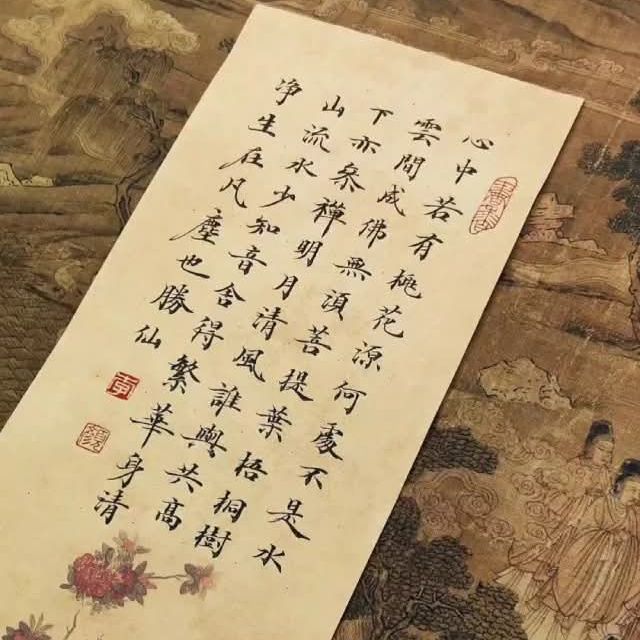 心中若有桃花源何處不是水
雲間成佛無須菩提葉梧桐樹
下亦叅禪明月清風誰與共高
山流水少知音舍得繁華身清
净生在凡塵也勝仙